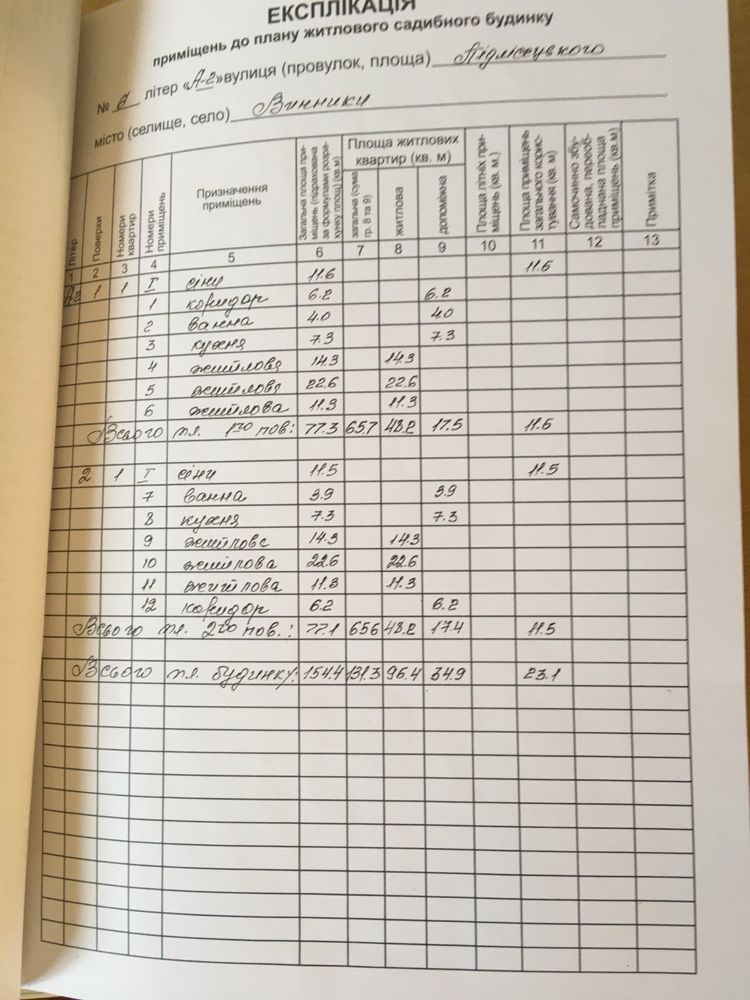 ЕКСПЛІКАЦІЯ
приміщень до плану житлового садибного будинку
№ 6 літер «А-2» вулиця (провулок, площа)
місто (селище, село) Винники
Літер Поверхи Номери квартир Номери приміщень Призначення приміщень Загальна площа приміщень (підрахована за формулами розрахунку площ) (кв.м) Площа житлових квартир (кв. м) загальна (сума гр. 8 та 9) житлова допоміжна Площа літніх приміщень (кв. м.) Площа приміщень загального користування (кв. м) Самочинно збудована, переобладнана площа приміщень (кв.м) Примітка
1 2 3 4 5 6 7 8 9 10 11 12 13
А2 1 1 I сіни 11.6 11.6
1 коридор 6.2 6.2
2 ванна 4.0 4.0
3 кухня 7.3 7.3
4 житлова 14.3 14.3
5 житлова 22.6 22.6
6 житлова 11.3 11.3
Всього пл. 1го пов: 77.3 65.7 48.2 17.5 11.6
2 1 I сіни 11.5 11.5
7 ванна 3.9 3.9
8 кухня 7.3 7.3
9 житлова 14.3 14.3
10 житлова 22.6 22.6
11 житлова 11.3 11.3
12 коридор 6.2 6.2
Всього пл. 2го пов.: 77.1 65.6 48.2 17.4 11.5
Всього пл. будинку: 154.4 131.3 96.4 34.9 23.1